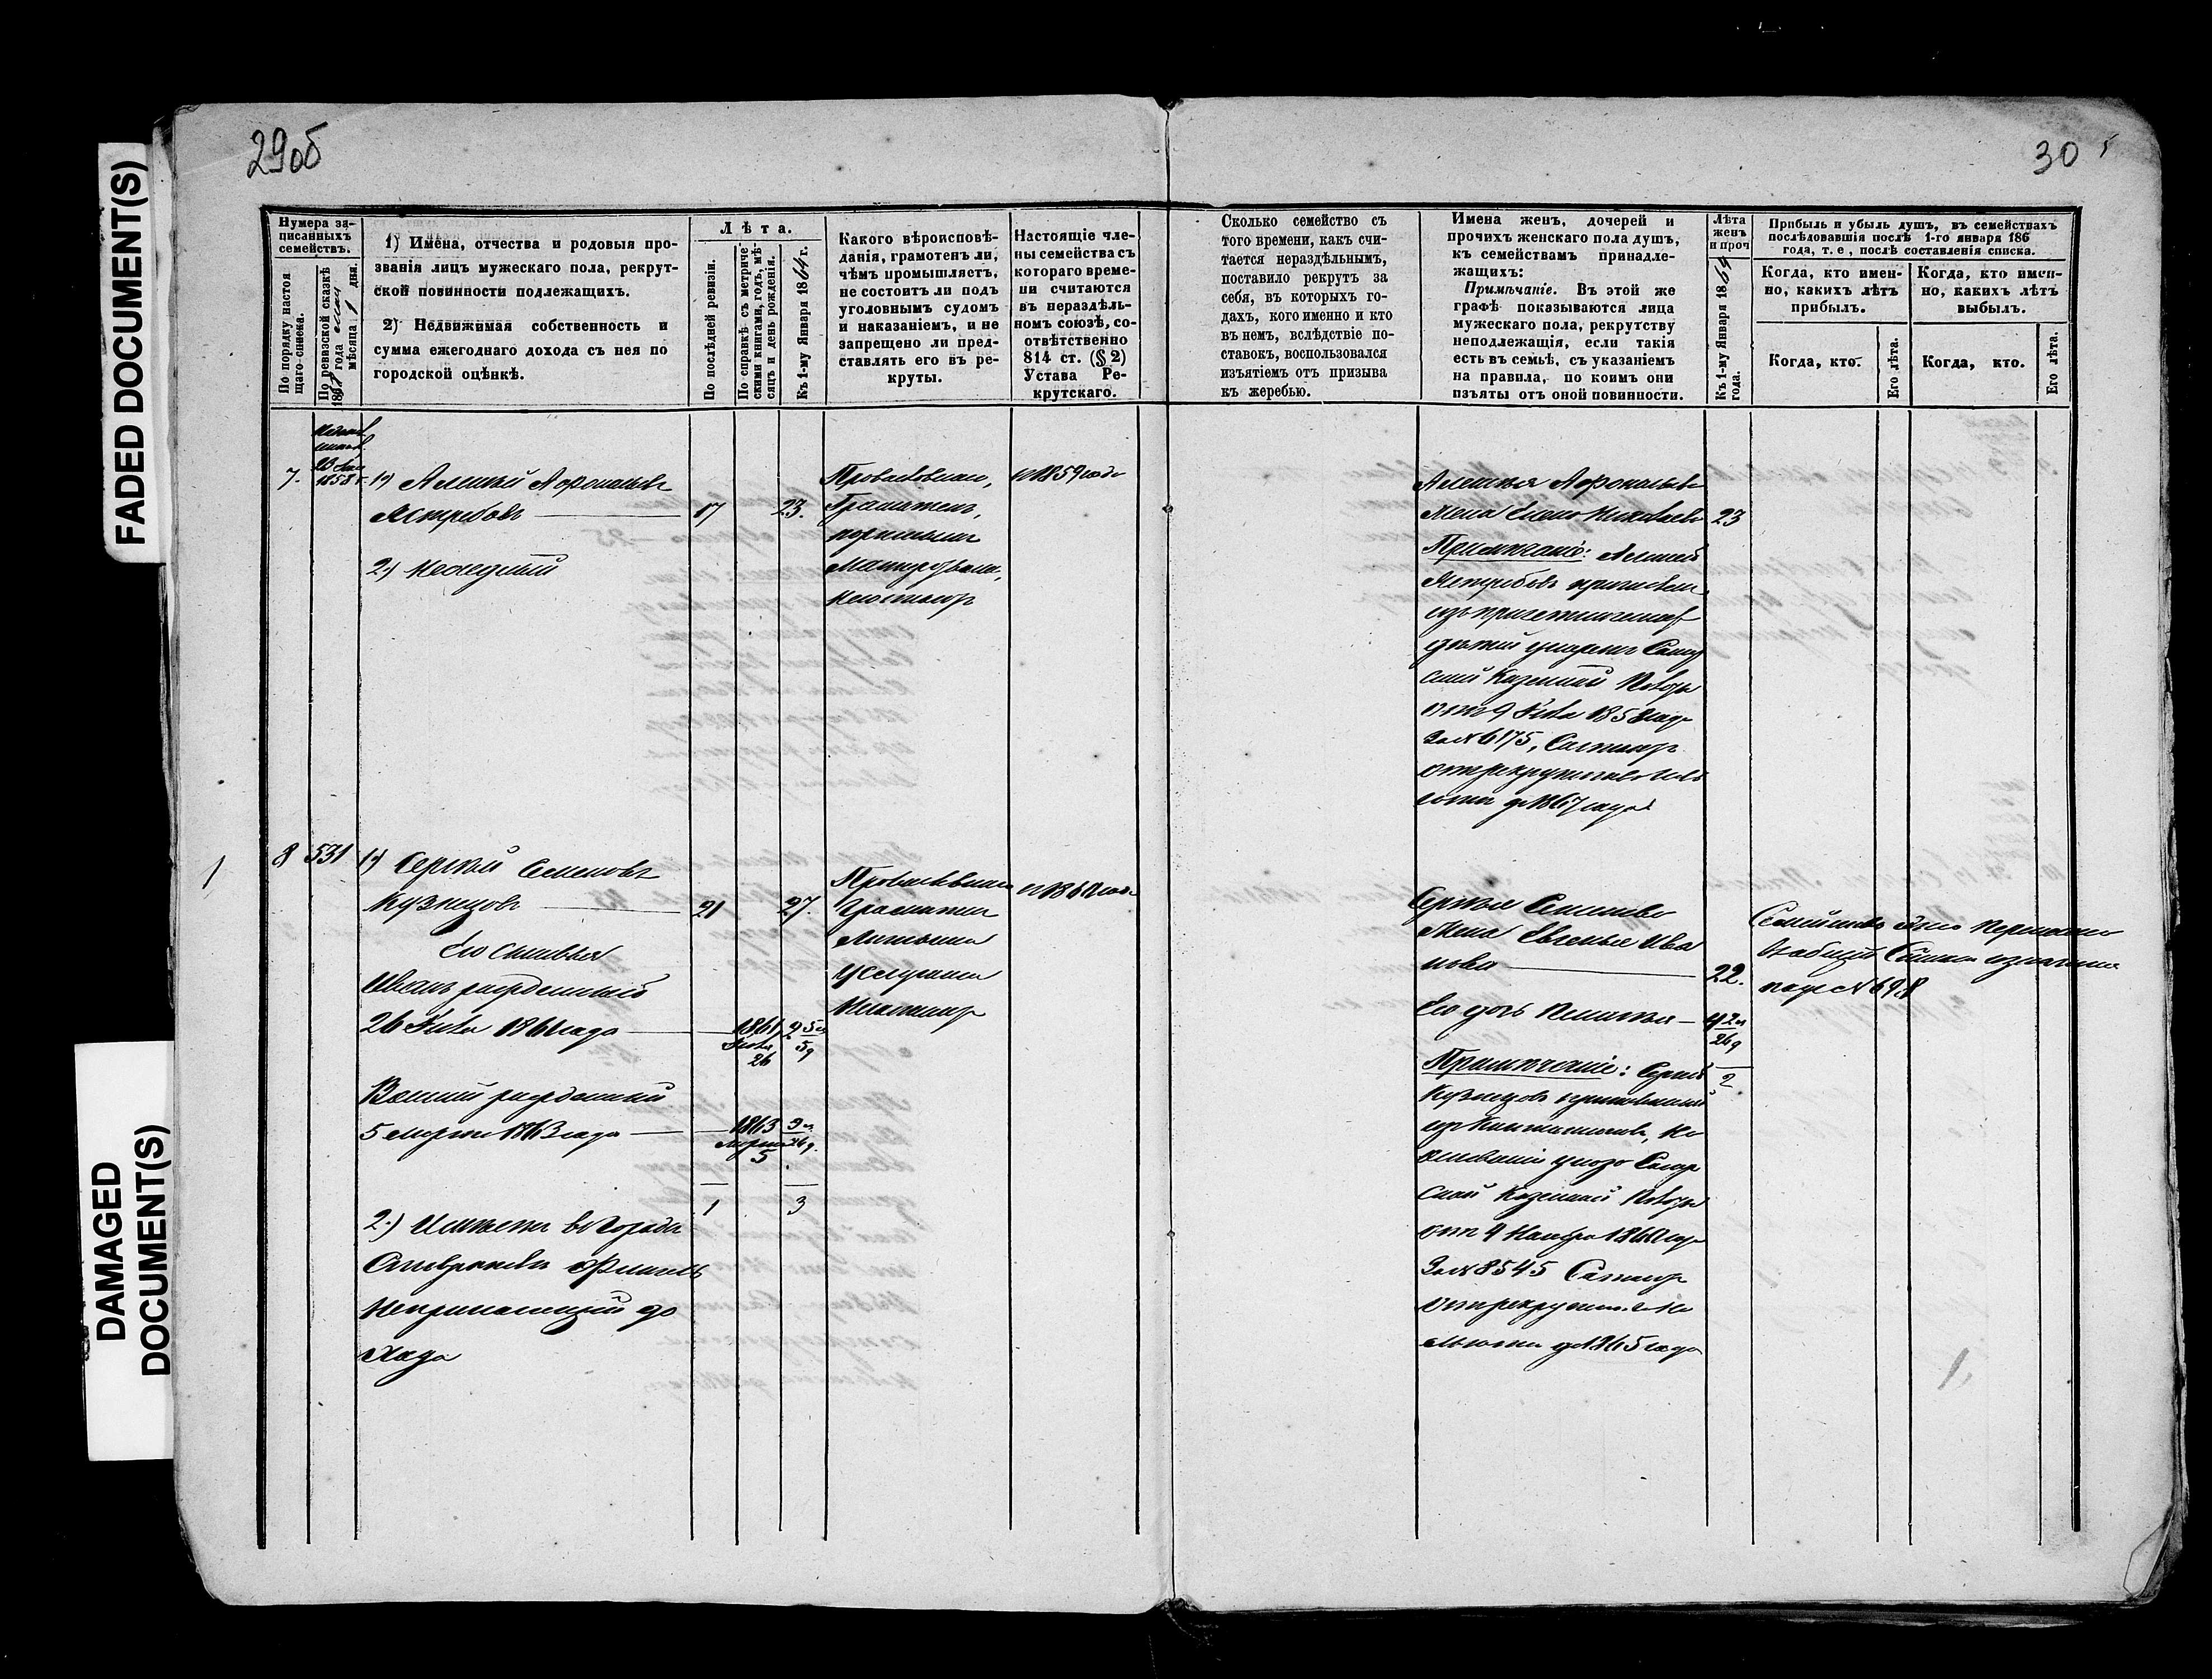 FADED DOCUMENT(S)
DAMAGED
DOCUMENT(S)
29об
30
Нумера за-
писанныхъ
семействъ.
По порядку настоя
щаго списка.
По ревизской сказкѣ
185 года мая
мѣсяца 1 дня.
1) Имена, отчества и родовыя про-
званія лицъ мужескаго пола, рекрут-
ской повинности подлежащихъ.
2) Недвижимая собственность и
сумма ежегоднаго дохода съ нея по
городской оцѣнкѣ.
Лѣта.
По послѣдней ревизіи.
По справкѣ съ метриче
скими книгами, годъ, мѣ
сяцъ и день рожденія.
Къ 1-му Января 1864 г.
Какого вѣроисповѣ-
данія, грамотенъ ли,
чѣмъ промышляетъ,
не состоитъ ли подъ
уголовнымъ судомъ
и наказаніемъ, и не
запрещено ли пред-
ставлять его въ ре-
круты.
Настоящіе чле-
ны семейства съ
котораго време-
ни считаются
въ нераздѣль-
номъ союзѣ, со-
отвѣтственно
814 ст. (§ 2)
Устава Ре-
крутскаго.
Сколько семейство съ
того времени, какъ счи-
тается нераздѣльнымъ,
поставило рекрутъ за
себя, въ которыхъ го-
дахъ, кого именно и кто
въ немъ, вслѣдствіе по-
ставокъ, воспользовался
изъятіемъ отъ призыва
къ жеребью.
Имена женъ, дочерей и
прочихъ женскаго пола душъ,
къ семействамъ принадле-
жащихъ:
Примѣчаніе. Въ этой же
графѣ показываются лица
мужескаго пола, рекрутству
неподлежащія, если такія
есть въ семьѣ, съ указаніемъ
на правила, по коимъ они
изъяты отъ оной повинности.
Лѣта
женъ
и проч
Къ 1-му Января 1864
года.
Прибыль и убыль душъ, въ семействахъ
послѣдовавшія послѣ 1-го января 186
года, т. е, послѣ составленія списка.
Когда, кто имен-
но, какихъ лѣтъ
прибылъ.
Когда, кто имен-
но, какихъ лѣтъ
выбылъ.
Когда, кто.
Его лѣта.
Когда, кто.
Его лѣта.
7.
1858 г.
1) Алексѣй Афонасьевъ
Ястребовъ 17 23.
2) Неимѣетъ
Православнаго,
Грамотенъ,
портнымъ
мастерствомъ,
несостоитъ
съ 1859 года
Алексѣя Афонасьева
жена Елена Николаева 23
Примѣчаніе: Алексѣй
Ястребовъ причисленъ
указомъ Самар
ской Казенной Палаты
от 9 1858 года
за № 6175, Состоитъ
от рекрутства
до 1867 года
8 531 1) Сергѣй Семеновъ
Кузнецовъ 21 27.
Его сыновья
Иванъ рожденный
26 Іюля 1861 года 1861 Іюля 26 2 5м 5д
Василій рожденный
5 Марта 1863 года 1863 Марта 5 9м 26д.
1 3
2) Имѣетъ въ городѣ
Ставрополѣ флигель
неприносящій до
хода
Православнаго
Грамотенъ
Личными
услугами
Несостоитъ
съ 1860 года
Сергѣя Семенова
жена Евгенья Ива
нова 22.
Его дочь 2м 26д
2
Примѣчаніе: Сергѣй
Кузнецовъ
на
основаніи указа Самар
ской Казенной Палаты
от 4 Ноября 1860 года
за № 8545 Состоитъ
от рекрутства на
льготѣ до 1865 года
Семейство
подъ № 698
1
1